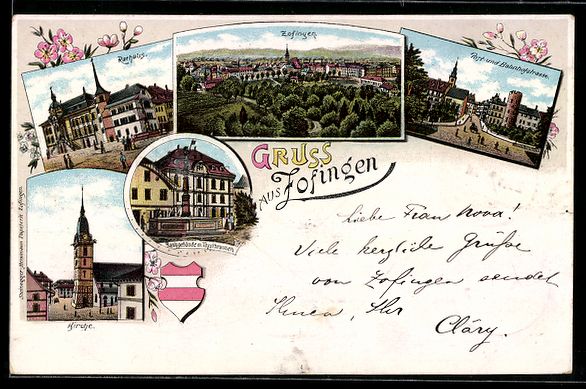 Rathaus.
Zofingen.
Post- und Bahnhofstrasse.
GRUSS
AUS Zofingen
Bankgebäude m. Thutbrunnen.
Kirche.
Liebe Frau Nova!
Viele herzliche Grüsse
von Zofingen sendet
Ihnen, Ihr
Cläry.